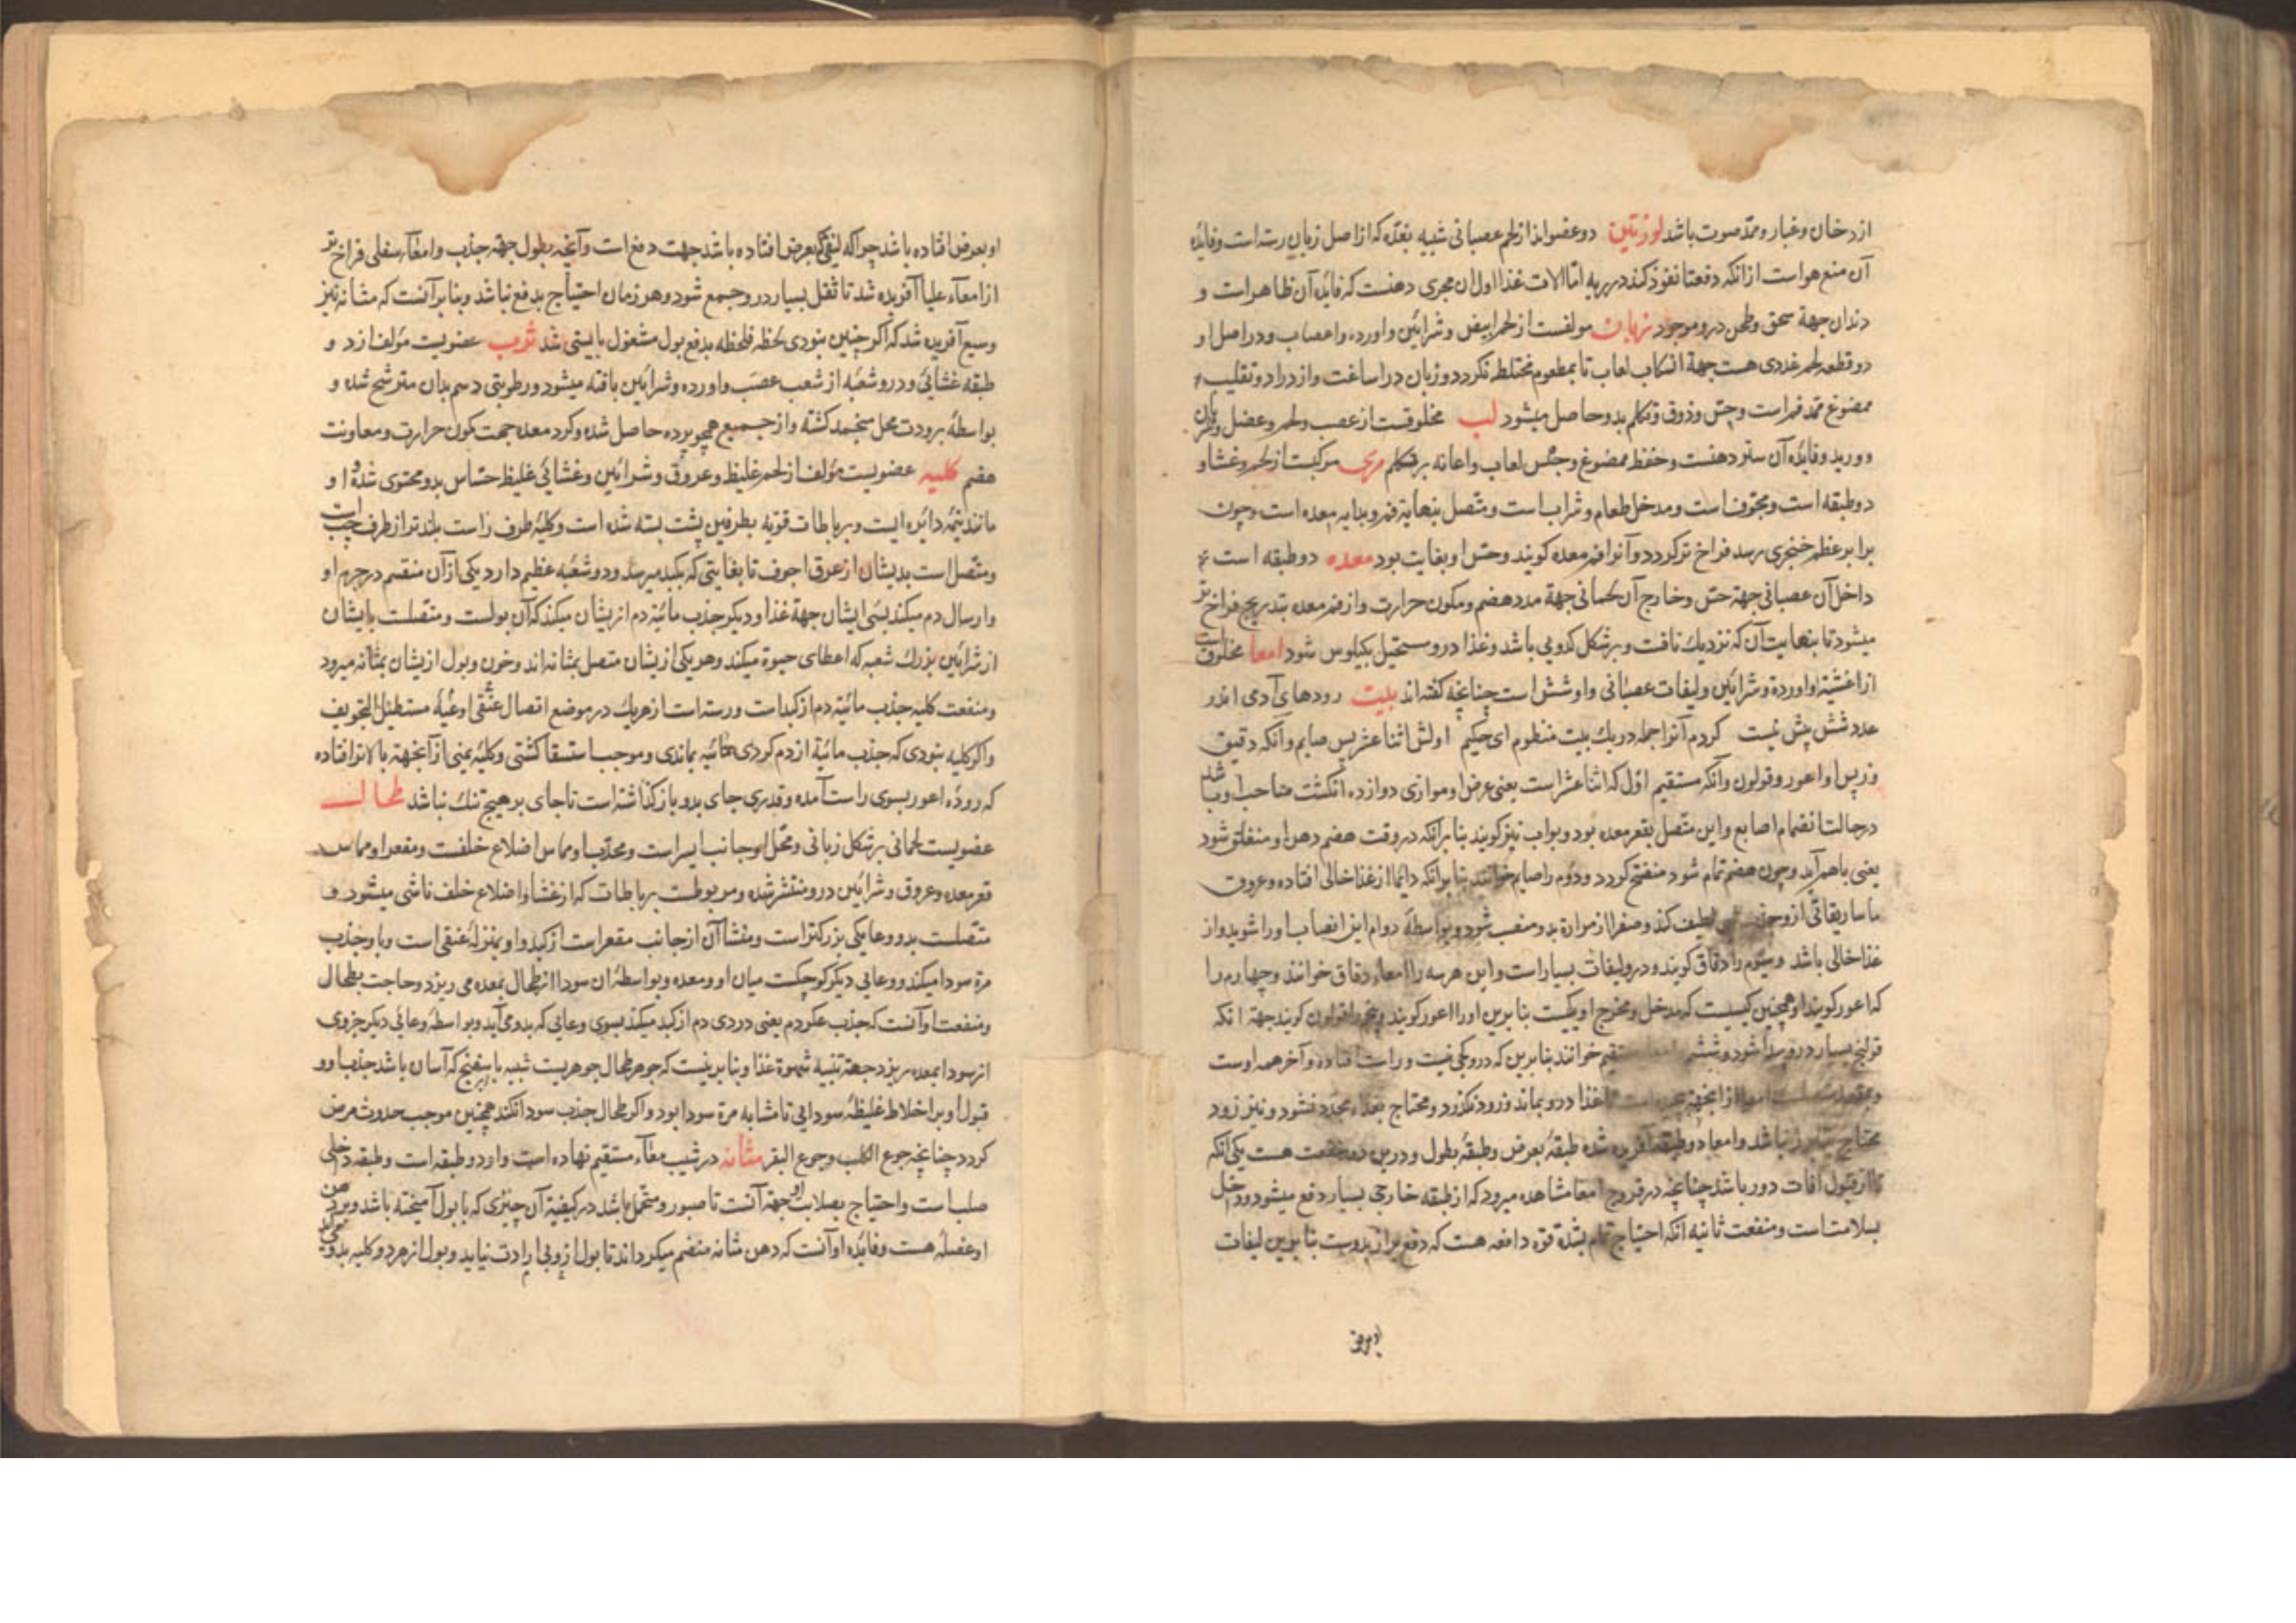 از دخان و غبار و ممد صوت باشد لوزتین دو عضواند از لحم عصبانی شبیه بغده که از اصل زبان رسته است و فایده
آن منع هواست از انکه دفعتا نفوذ کند در ریه اما الات غذا اول ان مجری دهنست که فایده آن ظاهر است و
دندان جهة سحق و طحن درو موجود زبان مولفست از لحم ابیض و شرائین و اورده و اعصاب و در اصل او
دو قطعه لحم غددی هست جهة انسکاب لعاب تا بمطعوم مختلط کردد و زبان در اساغت و ازدراد و تقلیب
ممضوغ ممد فم است و حس ذوق و تکلم بدو حاصل میشود لب مخلوقست از عصب و لحم و عضل و شریان
و ورید و فایده آن ستر دهنست و حفظ ممضوغ و حبس لعاب و اعانه بر تکلم مری مرکبست از لحم و غشا و
دو طبقه است و مجوف است و مدخل طعام و شراب است و متصل بنهایة فم و بدایه معده است و چون
برابر عظم خنجری رسد فراخ تر کردد و آنرا فم معده کویند و حس او بغایت بود معده دو طبقه است
داخل آن عصبانی جهة حس و خارج آن لحمانی جهة مدد هضم و مکون حرارت و از فم معده بتدریج فراخ تر
میشود تا بنهایت آن که نزدیک نافست و بر شکل کدویی باشد و غذا درو مستحیل بکیلوس شود امعا مخلوق است
از اغشیه و اورده و شرائین و لیفات عصبانی و او شش است چنانچه کفته اند بیت رودهای آدمی اندر
عدد شش بیش نیست کردم آنرا جمله در یک بیت منظوم ای حکیم اولش اثنا عشر پس صایم و آنکه دقیق
وز پس او اعور و قولون و آنکه مستقیم اول که اثنا عشر است یعنی عرض او موازی دوازده انکشت صاحب او باشد
در حالت انضمام اصابع و این متصل بقعر معده بود و بواب نیز کویند بنا برآنکه در وقت هضم دهن او منغلق شود
یعنی باهم آید و چون هضم تمام شود منفتح کردد و دوم را صایم خوانند بنا برانکه دایما از غذا خالی افتاده و عروق
ماساریقاتی ازو جذب لطیف کند و صفرا از مراره بدو منصب شود و بواسطهٔ دوام این انصباب او را شوید و از
غذا خالی باشد و سیوم را دقاق کویند و درو لیفات بسیار است و این هر سه را امعاء دقاق خوانند و چهارم را
که اعور کویند او همچنین کیسیست که مدخل و مخرج او یکیست بنا برین او را اعور کویند و پنجم را قولون کویند جهة انکه
قولنج بسیار درو پیدا شود و ششم مستقیم خوانند بنا برین که درو کجی نیست و راست افتاده و آخر همه اوست
غذا درو بماند و زود نکذرد و محتاج بغذاء مجدد نشود و نیز زود
محتاج نباشد و امعا دو طبقه آفریده شده طبقهٔ بعرض و طبقهٔ بطول و درین دو منفعت هست یکی انکه
تا از قبول آفات دور باشد چنانچه در قروح امعا مشاهده میرود که از طبقه خارجی بسیار دفع میشود و داخل
بسلامت است و منفعت ثانیه انکه احتیاج تمام بشدة قوة دافعه هست که دفع براز بدوست بنا برین لیفات
او بعرض افتاده باشد چراکه لیفی که بعرض افتاده باشد جهت دفع است و آنچه بطول جهة جذب و امعاء سفلی فراخ تر
از امعآء علیا آفریده شد تا ثقل بسیار درو جمع شود و هر زمان احتیاج بدفع نباشد و بنا برآنست که مثانه نیز
وسیع آفریده شد که اکر چنین نبودی لحظه فلحظه بدفع بول مشغول بایستی شد ثرب عضویست مولف از دو
طبقه غشائی و درو شعبه از شعب عصب و اورده و شرائین بافته میشود و رطوبتی دسم بدان مترشح شده و
بواسطهٔ برودت محل منجمد کشته و از جمیع همچو پرده حاصل شده و کرد معده جهت مکون حرارت و معاونت
هضم کلیه عضویست مؤلف از لحم غلیظ و عروق و شرائین و غشائی غلیظ حساس بدو محتوی شده و او
مانند نیمهٔ دائره ایست و برباطات قویه بطرفین پشت بسته شده است و کلیهٔ طرف راست بلندتر از طرف چپ است
و متصل است بدیشان از عرق اجوف تا بغایتی که بکبد میرسد و دو شعبه عظیم دارد یکی از آن منقسم در جرم او
و ارسال دم میکند بسوی ایشان جهة غذا و دیکر جذب مائیة دم از یشان میکند که آن بولست و متصلست بایشان
از شرائین بزرک شعبه که اعطای حیوة میکند و هر یکی ازیشان متصل بمثانه اند و خون و بول ازیشان بمثانه میرود
و منفعت کلیه جذب مائیة دم از کبد است و رسته است از هر یک در موضع اتصال عنقی اوعیهٔ مستطیل التجویف
و اکر کلیه نبودی که جذب مائیة از دم کردی مائیه بماندی و موجب استسقا کشتی و کلیهٔ یمنی از آنجهة بالاتر افتاده
که رودهٔ اعور بسوی راست آمده و قدری جای بدو باز کذاشته است تا جای بر هیچ تنک نباشد طحال
عضویست لحمانی بر شکل زبانی و محل او جانب ایسر است و محدب او مماس اضلاع خلفست و مقعر او مماس
قعر معده و عروق و شرائین درو منتشر شده و مربوطست برباطات که از غشا و اضلاع خلف ناشی میشود و
متصلست بدو وعا یکی بزرکتر است و منشأ آن از جانب مقعر است از کبد و او بمنزلهٔ عنقی است و باو جذب
مرة سودا میکند و وعایی دیکر کوچکست میان او و معده و بواسطهٔ ان سودا از طحال بمعده می ریزد و حاجت بطحال
و منفعت او آنست که جذب عکر دم یعنی دردی دم از کبد میکند بسوی وعایی که بدو می آید و بواسطهٔ وعائی دیکر جزوی
از سودا بمعده ریزد جهة تنبیه شهوة غذا و بنا برینست که جوهر طحال جوهریست شبیه باسفنج که آسان باشد جذب او و
قبول او بر اخلاط غلیظهٔ سودایی تا مشابه مرة سودا بود و اکر طحال جذب سودا نکند همچنین موجب حدوث مرض
کردد چنانچه جوع الکلب و جوع البقر مثانه در شیب معآء مستقیم نهاده است و او دو طبقه است و طبقه داخلی
صلب است و احتیاج بصلابت او جهة آنست تا صبور و متحمل باشد در کیفیة آن چیزی که با بول آمیخته باشد و بر دهن
او عضلهٔ هست و فایده او آنست که دهن مثانه منضم میکرداند تا بول ازو بی ارادت نیاید و بول از هر دو کلیه بدو